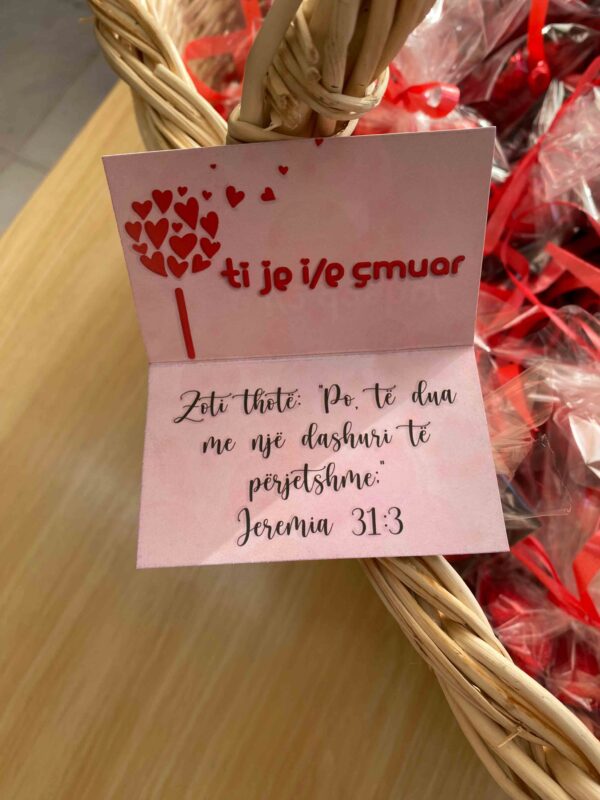 ti je i/e çmuar
Zoti thotë: "Po, të dua
me një dashuri të
përjetshme;"
Jeremia 31:3